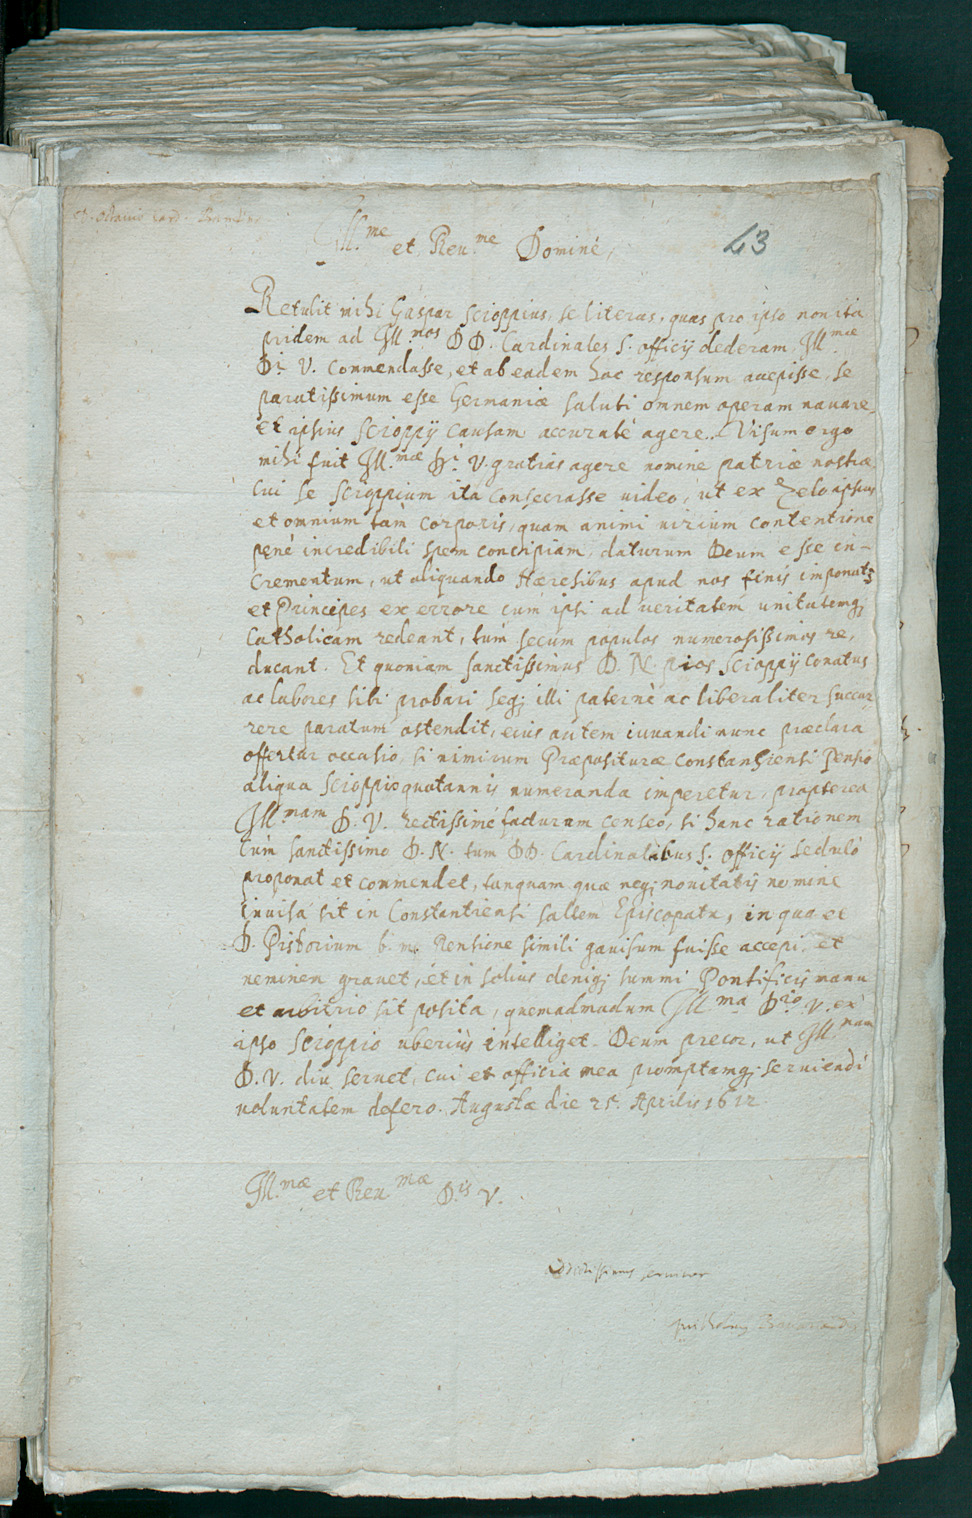 Octavio Card.
Ill.me et Reu.me Dominè,
43
Retulit mihi Gaspar Scioppius, se literas, quas pro ipso non ita
pridem ad Ill.mos DD. Cardinales S. officij dederam, Ill.mae
Di. V. commendasse, et ab eadem hoc responsum accepisse, se
paratissimum esse Germaniæ saluti omnem operam nauare,
et ipsius Scioppij causam accuratè agere. Visum ergo
mihi fuit Ill.mæ Di. V. gratias agere nomine patriæ nostræ,
cui se Scioppium ita consecrasse uideo, ut ex Zelo ipsius
et omnium tàm corporis, quàm animi uirium contentione
penè incredibili spem concipiam, daturum Deum esse in-
crementum, ut aliquando Hæresibus apud nos finis imponatr,
et Principes ex errore cùm ipsi ad ueritatem unitatemq;
Catholicam redeant, tùm secum populos numerosissimos re,
ducant. Et quoniam sanctissimus D. N. pios Scioppij conatus
ac labores sibi probari seq; illi paternè ac liberaliter succur,
rere paratum ostendit, eius autem iuuandi nunc præclara
offertur occasio, si nimirum Præposituræ Constanhiensi Pensio
aliqua Scioppio quotannis numeranda imperetur, propterea
Ill.mam D. V. rectissimè facturam censeo, si hanc rationem
cùm sanctissimo D. N. tum DD. Cardinalibus S. officij sedulò
proponat et commendet, tanquam quæ neq; nouitatis nomine
inuisa sit in Constantiensi saltem Episcopatu, in quo et
D. Pistorium b. m. Pensione simili gauisum fuisse accepi, et
neminem grauet, et in solius deniq; summi Pontificis manu
et arbitrio sit posita, quemadmodum Ill.ma D.io V. ex
ipso Scioppio uberiùs intelliget. Deum precor, ut Ill.mam
D. V. diu seruet, cui et officia mea promptamq; seruiendi
uoluntatem defero. Augustæ die 25. Aprilis 1612.
Ill.mæ et Reu.mæ D.is V.
Addictissimus seruitor